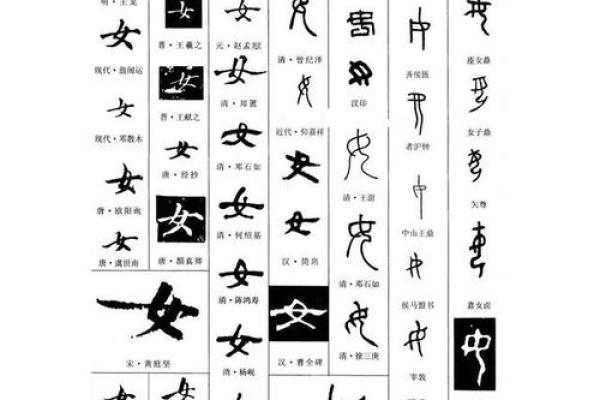 女
现代·翁闿运
女
现代·邓散木
女
唐·欧阳询
女
唐·虞世南
女
晋·王羲之
女
晋·王献之
女
唐·经抄
女
唐·颜真卿
女
宋·黄庭坚
女
元·赵孟頫
女
清·郑簠
女
清·邓石如
女
清·何绍基
女
清·陈鸿寿
女
清·杨岘
女
清·曾纪泽
女
近代·仰嘉祥
女
女
汉·简帛
女
汉·曹全碑
女
女
汉印
女
清·王澍
女
清·邓石如
女
清·徐三庚
女
齐侯匜
女
者沪钟
女
中山王鼎
女
侯马盟书
女
宰敦
女
女
女子鼎
女
矢尊
女
嘉女卣
女